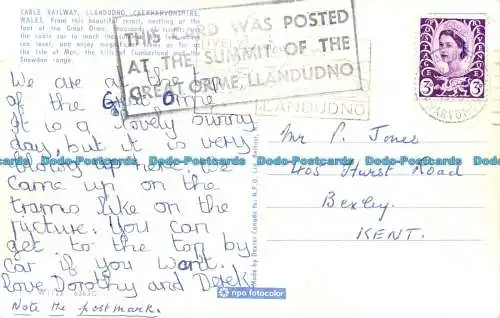 CABLE RAILWAY, LLANDUDNO, CAERNARVONSHIRE,
WALES. From this beautiful resort, nestling at the
foot of the Great Orme, thousands
the cable car to reach the
sea level, and enjoy magnificent as far as
Isle of Man, the hills of Cumberland and the
Snowdon range.
THIS CARD WAS POSTED
AT THE SUMMIT OF THE
GREAT ORME, LLANDUDNO
LLANDUDNO
3D
We are at the top
of the Great Orme
It is a lovely sunny
day, but it is very
blowy up here. We
came up on the
trams like on the
picture. You can
get to the top by
car if you want.
love Dorothy and Derek
Note the postmark.
Mr P. Jones
405 Hurst Road
Bexley.
KENT.
Made by Dexter Canada for N.P.O. Ltd., Belfast
npo fotocolor
Dodo-Postcards Dodo-Postcards Dodo-Postcards Dodo-Postcards Dodo-Postcards